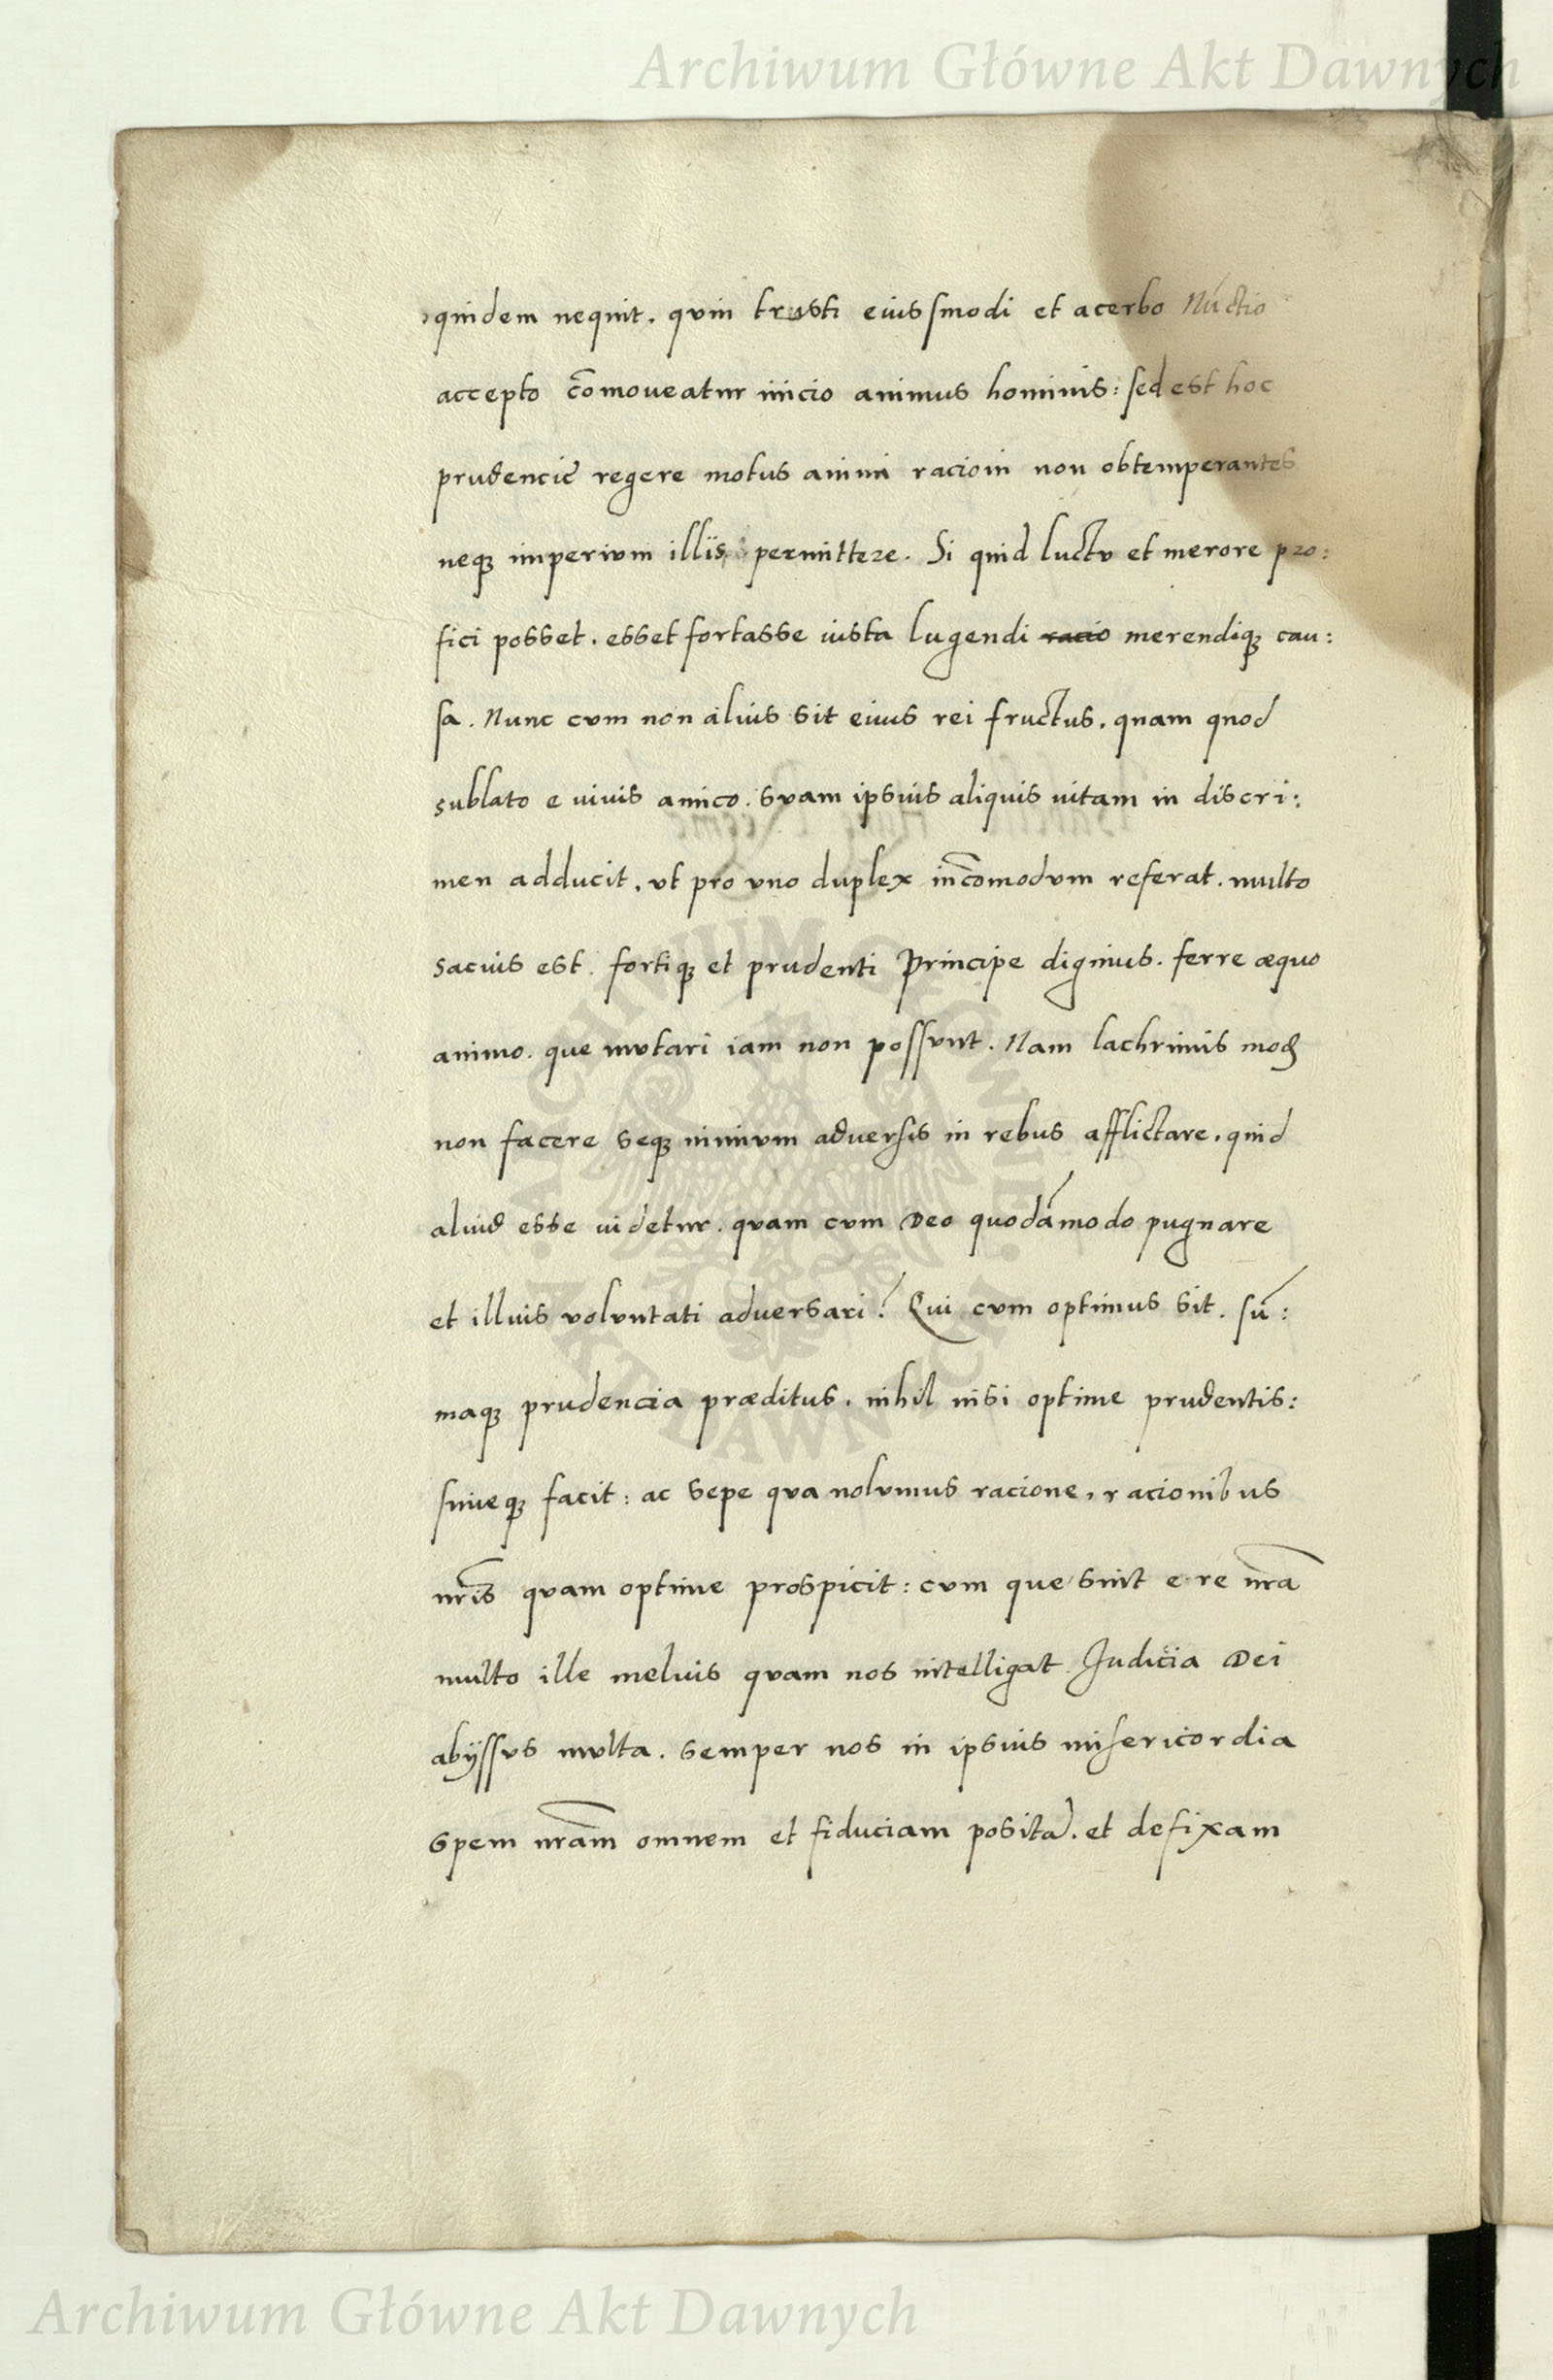 Archiwum Główne Akt Dawnych
quidem nequit. quin tristi eiusſmodi et acerbo Núctio
accepto c̃omoueatur inicio animus hominis: ſed est hoc
prudencię regere motus animi racioni non obtemperantes
neqꝫ imperium illis permittere. Si quid luctu et merore pro:
fici posset. esset fortasse iusta lugendi racio merendiqꝫ cau:
ſa. Nunc cum non alius sit eius rei fructus. quam quod
sublato e vivis amico. suam ipsius aliquis uitam in discri:
men adducit, ut pro uno duplex inc̃omodum referat. multo
sacius est. fortiqꝫ et prudenti Principe dignius. ferre æquo
animo. que mutari iam non poſſunt. Nam lachrimis mod̃
non facere seqꝫ nimium adverſis in rebus afflictare. quid
aliud esse uidetur. quam cum Deo quodãmodo pugnare
et illius voluntati adversari? Qui cum optimus sit. sũ:
maqꝫ prudencia præditus. nihil nisi optime prudentis:
ſimeqꝫ facit: ac sepe qua nolumus racione, racionibus
nr̃is quam optime prospicit: cum que sint e re nr̃a
multo ille melius quam nos intelligat. Judicia Dei
abÿſſus multa. semper nos in ipsius miſericordia
spem nr̃am omnem et fiduciam positã. et defixam
ARCHIWUM GŁÓWNE AKT DAWNYCH
Archiwum Główne Akt Dawnych